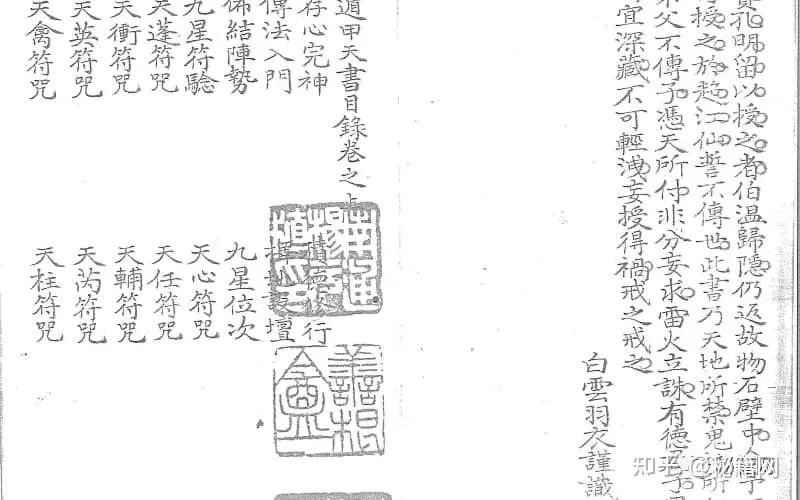 孔明留以授之者伯溫歸隱仍返故物石壁中今予
授之於趙江仙誓不傳也此書乃天地所禁鬼神所
父不傳子憑天所付非分妄求雷火立誅有德君子
宜深藏不可輕洩妄授得禍戒之戒之
白雲羽衣謹識
遁甲天書目錄卷之上
存心完神 積德修行
傳法入門 壇
佈結陣勢 九星位次
九星符驗 天心符咒
天蓬符咒 天任符咒
天衝符咒 天輔符咒
天英符咒 天芮符咒
天禽符咒 天柱符咒
知乎 @秘籍网